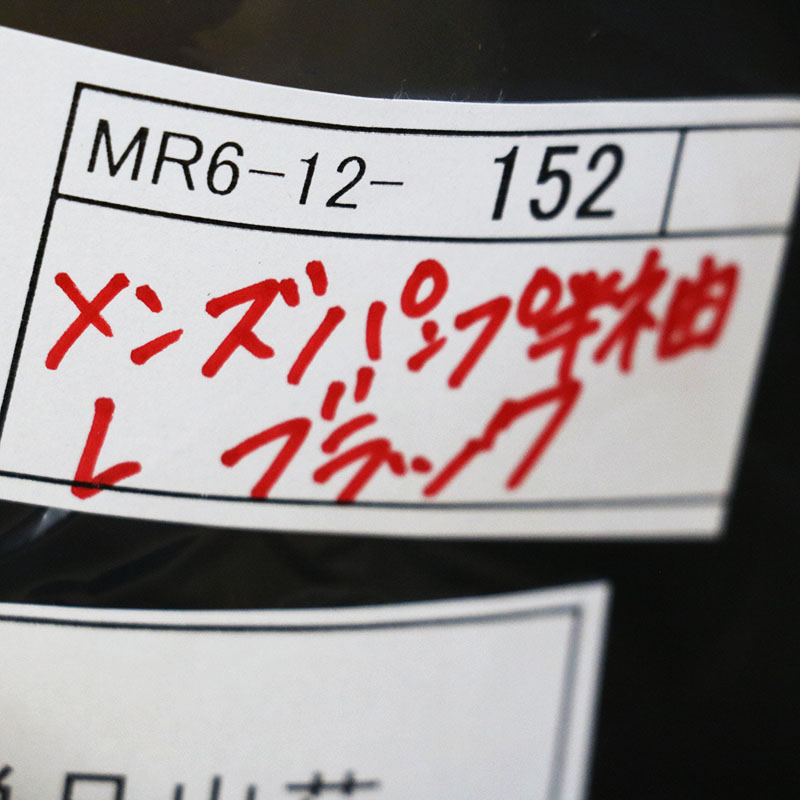 MR6-12- 152
メンズパップ半袖
L ブラック